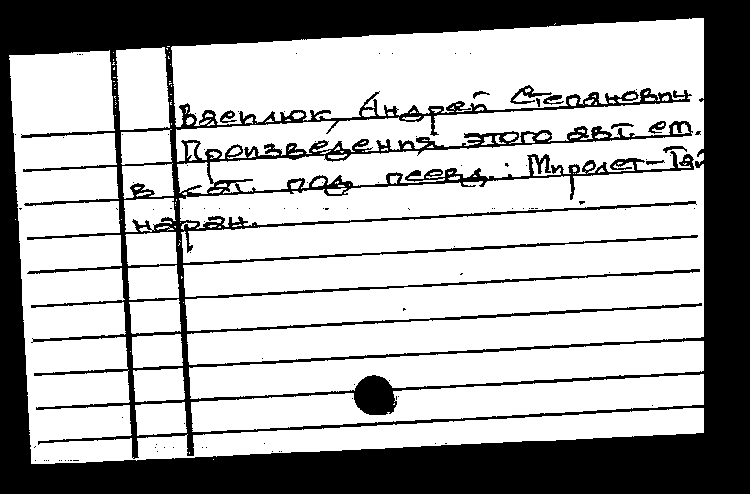 Вяеплюк, Андрей Степанович.
Произведения этого авт. см.
в кат. под псевд.: Миролет-Тай
наран.